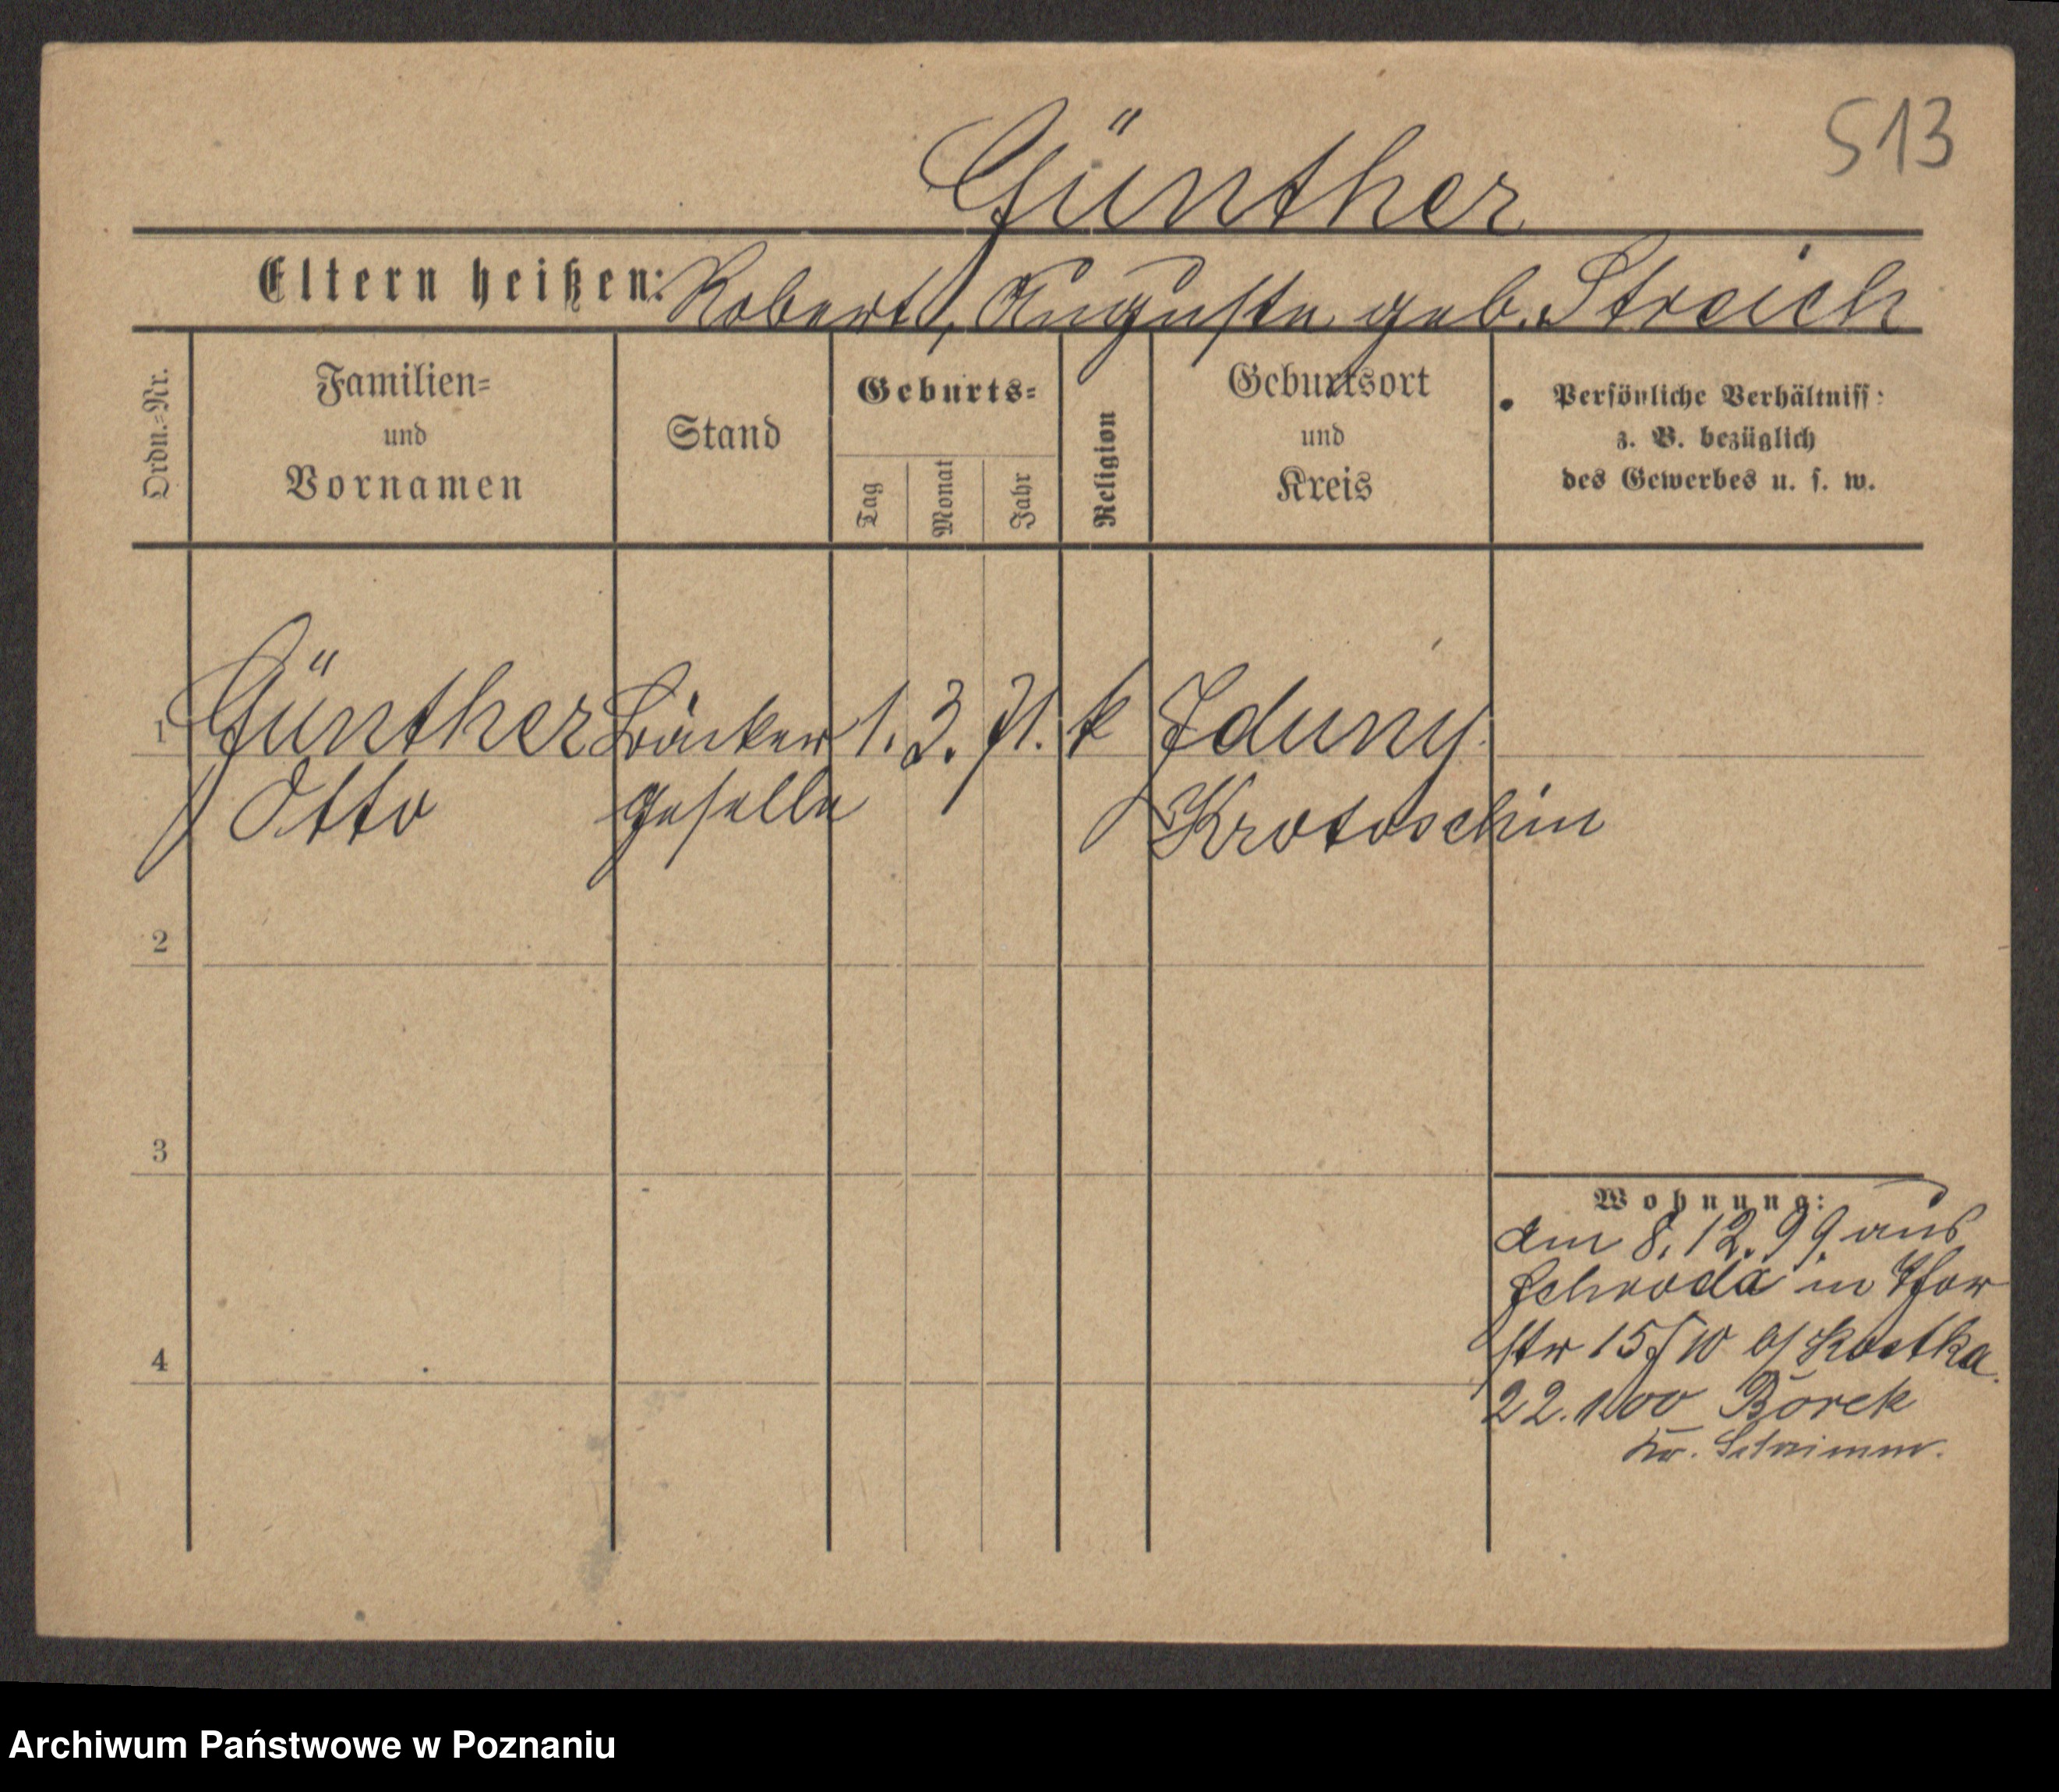 513
Günther
Eltern heißen: Robert, Auguste geb. Streich
Ordn.=Nr.
Familien=
und
Vornamen
Stand
Geburts=
Tag
Monat
Jahr
Religion
Geburtsort
und
Kreis
Persönliche Verhältniss:
z. B. bezüglich
des Gewerbes u. s. w.
1 Günther Bäcker 1. 3. 71. k Zduny
Otto geselle Krotoschin
2
3
4
Wohnung:
am 8. 12. 99 aus
Schroda in
str 15 b/ Kostka.
22. 1 00 Borek
Kr. Schrimm.
Archiwum Państwowe w Poznaniu